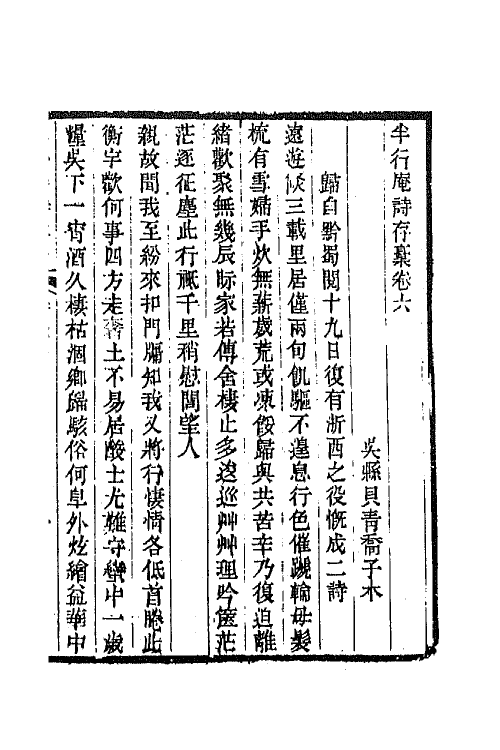 半行庵詩存稾卷六
吳縣貝青喬子木
歸自黔蜀閱十九日復有浙西之役慨成二詩
遠遊候三載里居僅兩旬飢驅不遑息行色催蹴輪母髮
梳有雪婦手炊無薪歲荒或凍餒歸與共苦辛乃復迫離
緒歡聚無幾辰眎家若傳舍棲止多逡巡艸艸理吟篋茫
茫逐征塵此行祇千里稍慰閭望人
親故聞我至紛來扣門牖知我又將行悽情各低首睠此
衡宇歡何事四方走瘠土不易居酸士尤難守蠻中一歲
糧吳下一宵酒久棲枯涸鄉歸駭俗何阜外炫繪益華中